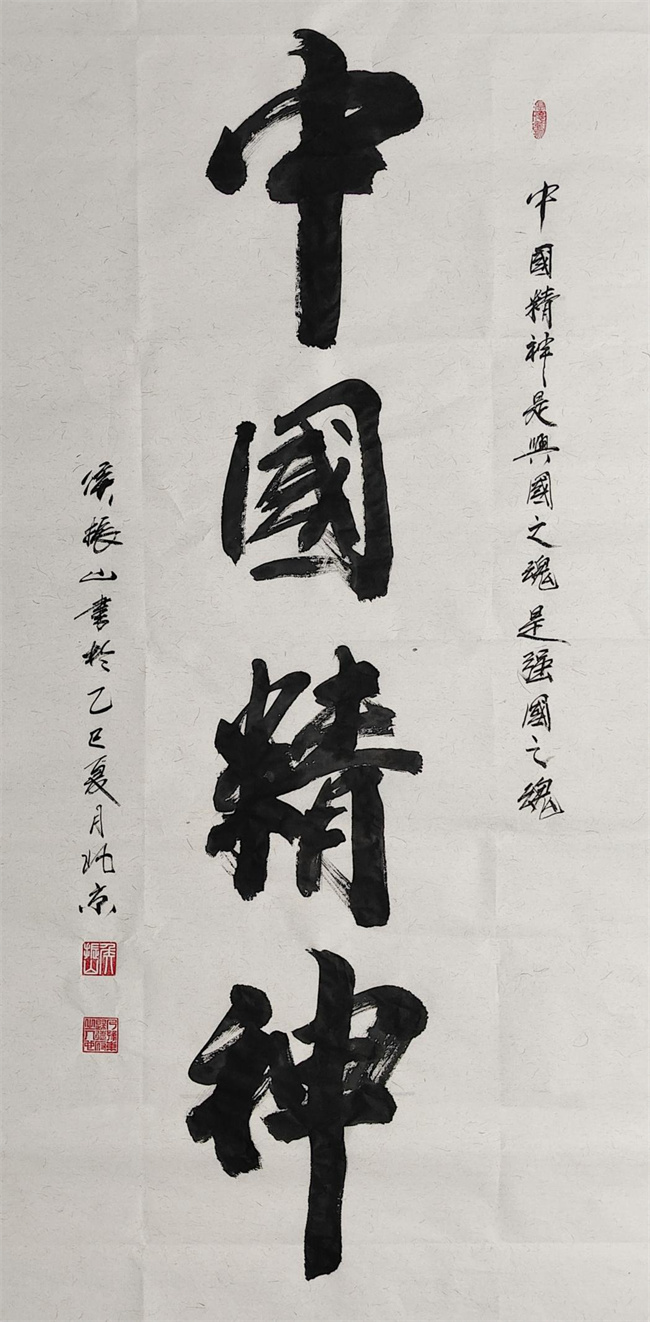 中國精神是興國之魂是强國之魂
中國精神
侯振山書於乙巳夏月北京